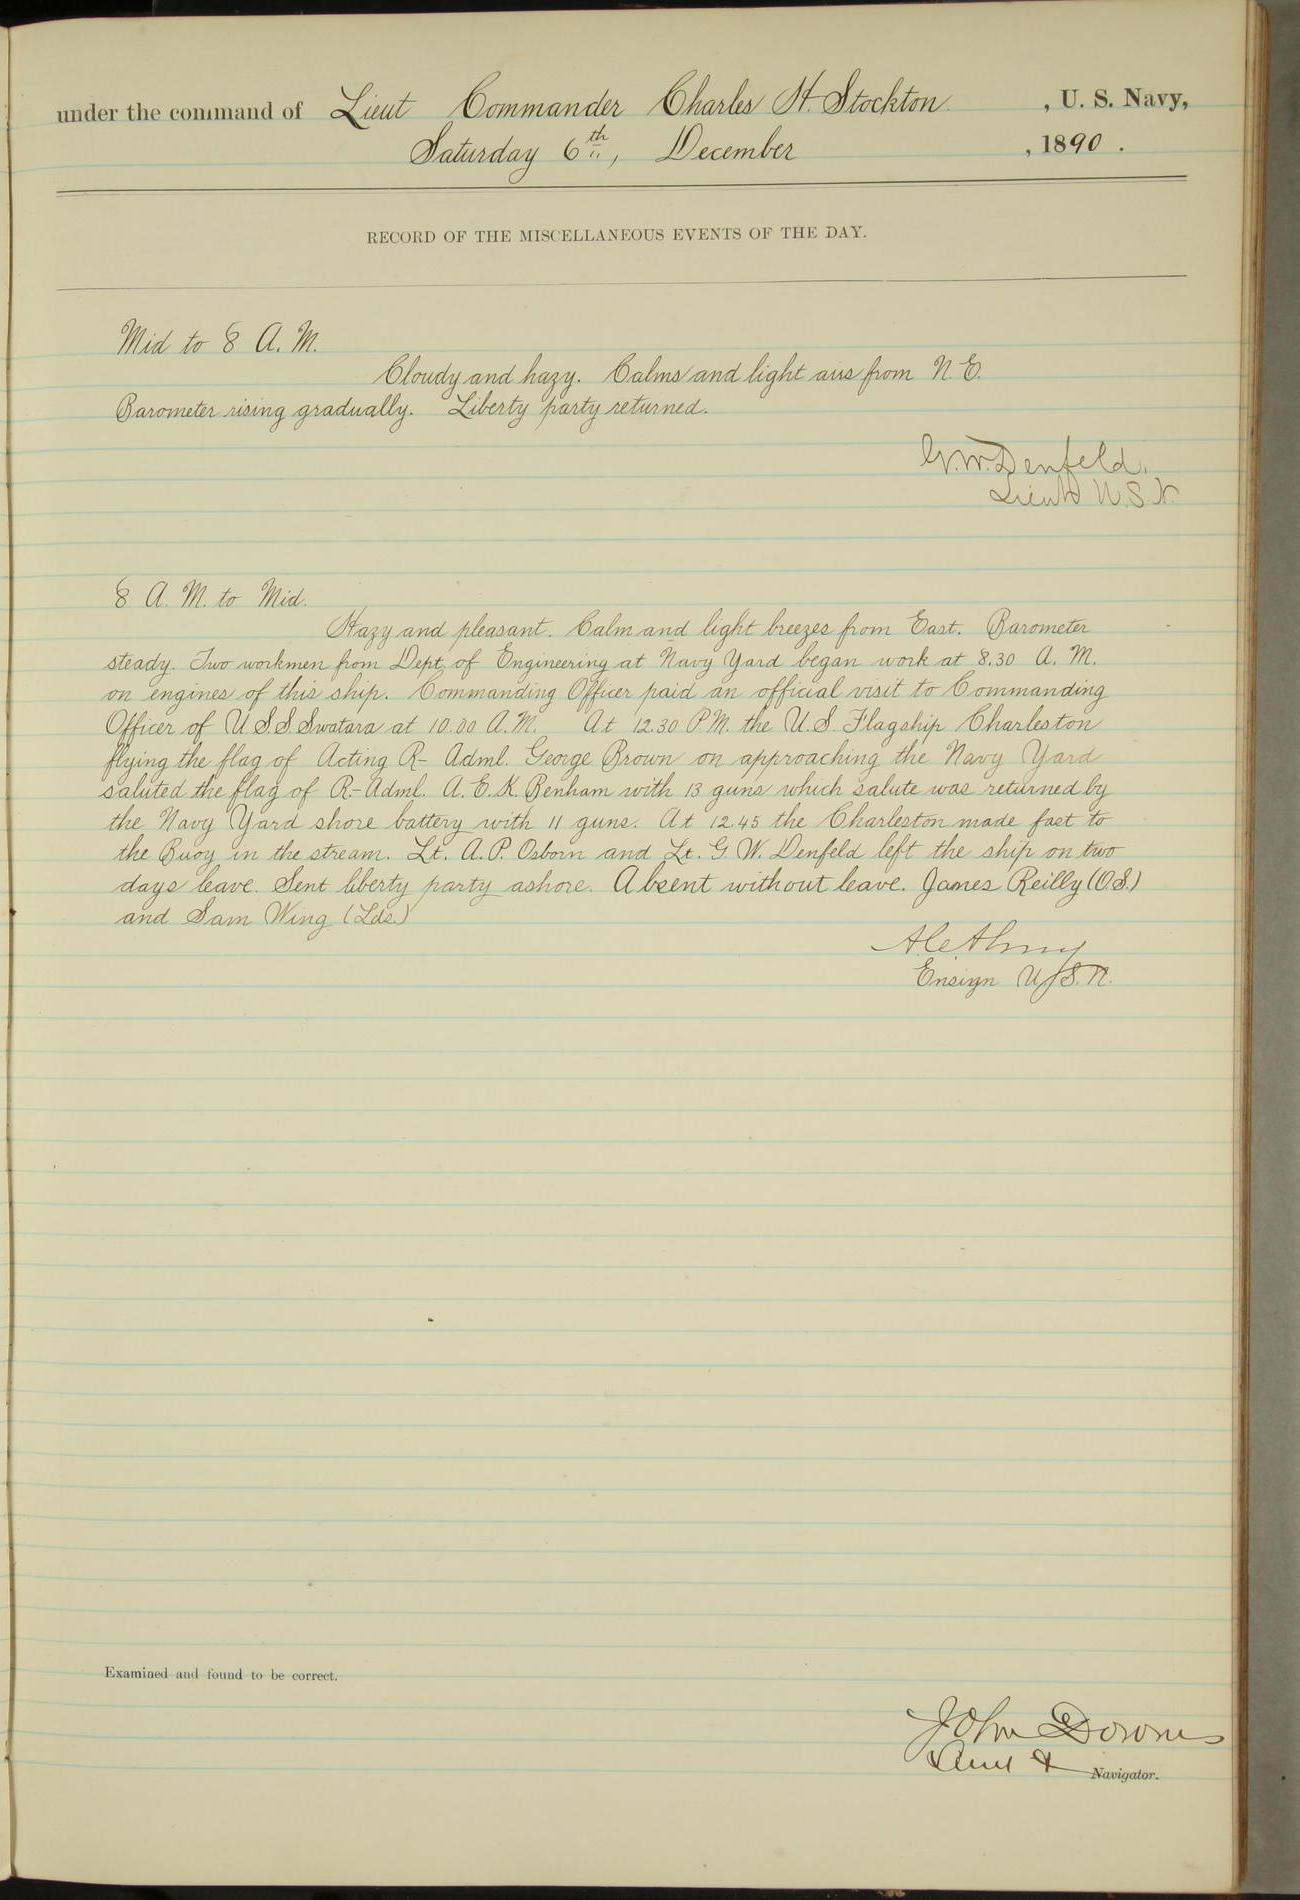 under the command of Lieut Commander Charles H. Stockton , U. S. Navy,
Saturday 6th, December , 1890 .
RECORD OF THE MISCELLANEOUS EVENTS OF THE DAY.
Mid to 8 A. M.
Cloudy and hazy. Calms and light airs from N. E.
Barometer rising gradually. Liberty party returned.
G. W. Denfeld.
Lieut U. S. N.
8 A. M. to Mid.
Hazy and pleasant. Calm and light breezes from East. Barometer
steady. Two workmen from Dept. of Engineering at Navy Yard began work at 8.30 A. M.
on engines of this ship. Commanding Officer paid an official visit to Commanding
Officer of U S S Swatara at 10.00 A. M. At 12.30 P. M. the U. S. Flagship Charleston
flying the flag of Acting R- Adml. George Brown on approaching the Navy Yard
saluted the flag of R-Adml. A. E. K. Benham with 13 guns which salute was returned by
the Navy Yard shore battery with 11 guns. At 12.45 the Charleston made fast to
the Buoy in the stream. Lt. A. P. Osborn and Lt. G. W. Denfeld left the ship on two
days leave. Sent liberty party ashore. Absent without leave. James Reilly (O.S.)
and Sam Wing (Lds.)
Ensign U. S. N.
Examined and found to be correct.
John Downes
Lieut & Navigator.